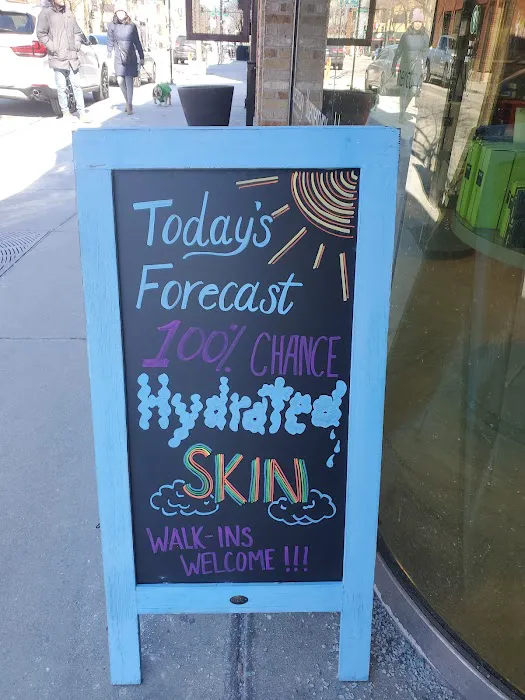 Today's
Forecast
100% CHANCE
Hydrated
SKIN
WALK-INS
WELCOME !!!